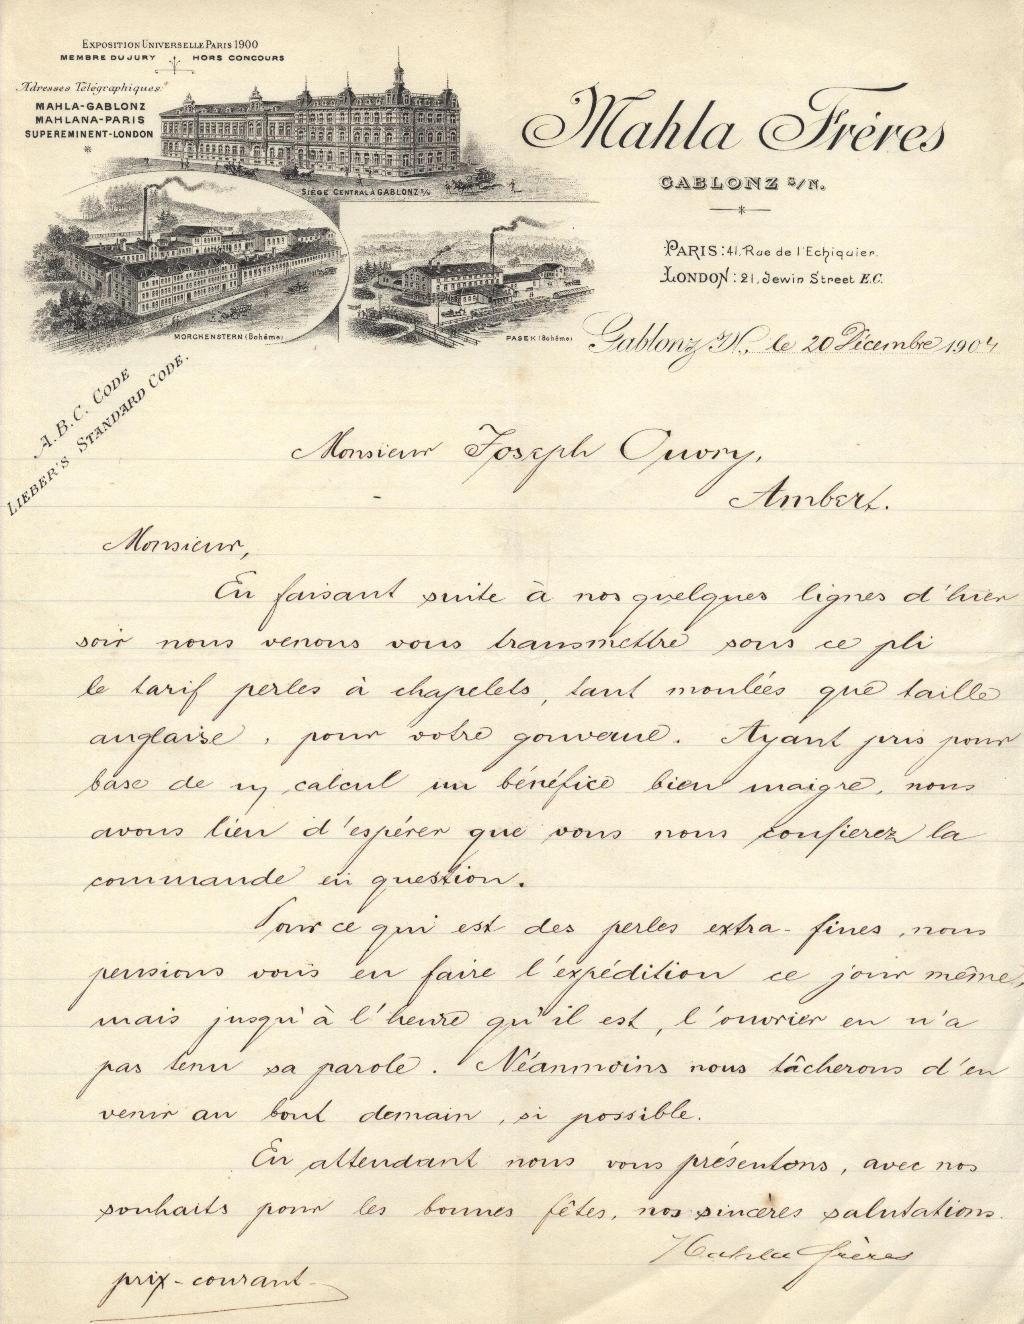 EXPOSITION UNIVERSELLE PARIS 1900
MEMBRE DU JURY HORS CONCOURS
Adresses Télégraphiques:
MAHLA-GABLONZ
MAHLANA-PARIS
SUPEREMINENT-LONDON
SIÈGE CENTRAL À GABLONZ s/N
MORCHENSTERN (Bohême)
PASEK (Bohême)
Mahla Fréres
GABLONZ s/N.
PARIS: 41, Rue de l'Echiquier.
LONDON: 21, Jewin Street E.C.
Gablonz s/N., le 20 Décembre 1904
A.B.C. CODE
LIEBER'S STANDARD CODE.
Monsieur Joseph Ouvry,
Ambert.
Monsieur,
En faisant suite à nos quelques lignes d'hier
soir nous venons vous transmettre sous ce pli
le tarif perles à chapelets, tant moulées que taille
anglaise, pour votre gouverne. Ayant pris pour
base de n/ calcul un bénéfice bien maigre, nous
avons lieu d'espérer que vous nous confierez la
commande en question.
Pour ce qui est des perles extra-fines, nous
pensions vous en faire l'expédition ce jour même,
mais jusqu'à l'heure qu'il est, l'ouvrier en n'a
pas tenu sa parole. Néanmoins nous tâcherons d'en
venir au bout demain, si possible.
En attendant nous vous présentons, avec nos
souhaits pour les bonnes fêtes, nos sincères salutations.
Mahla frères
prix-courant